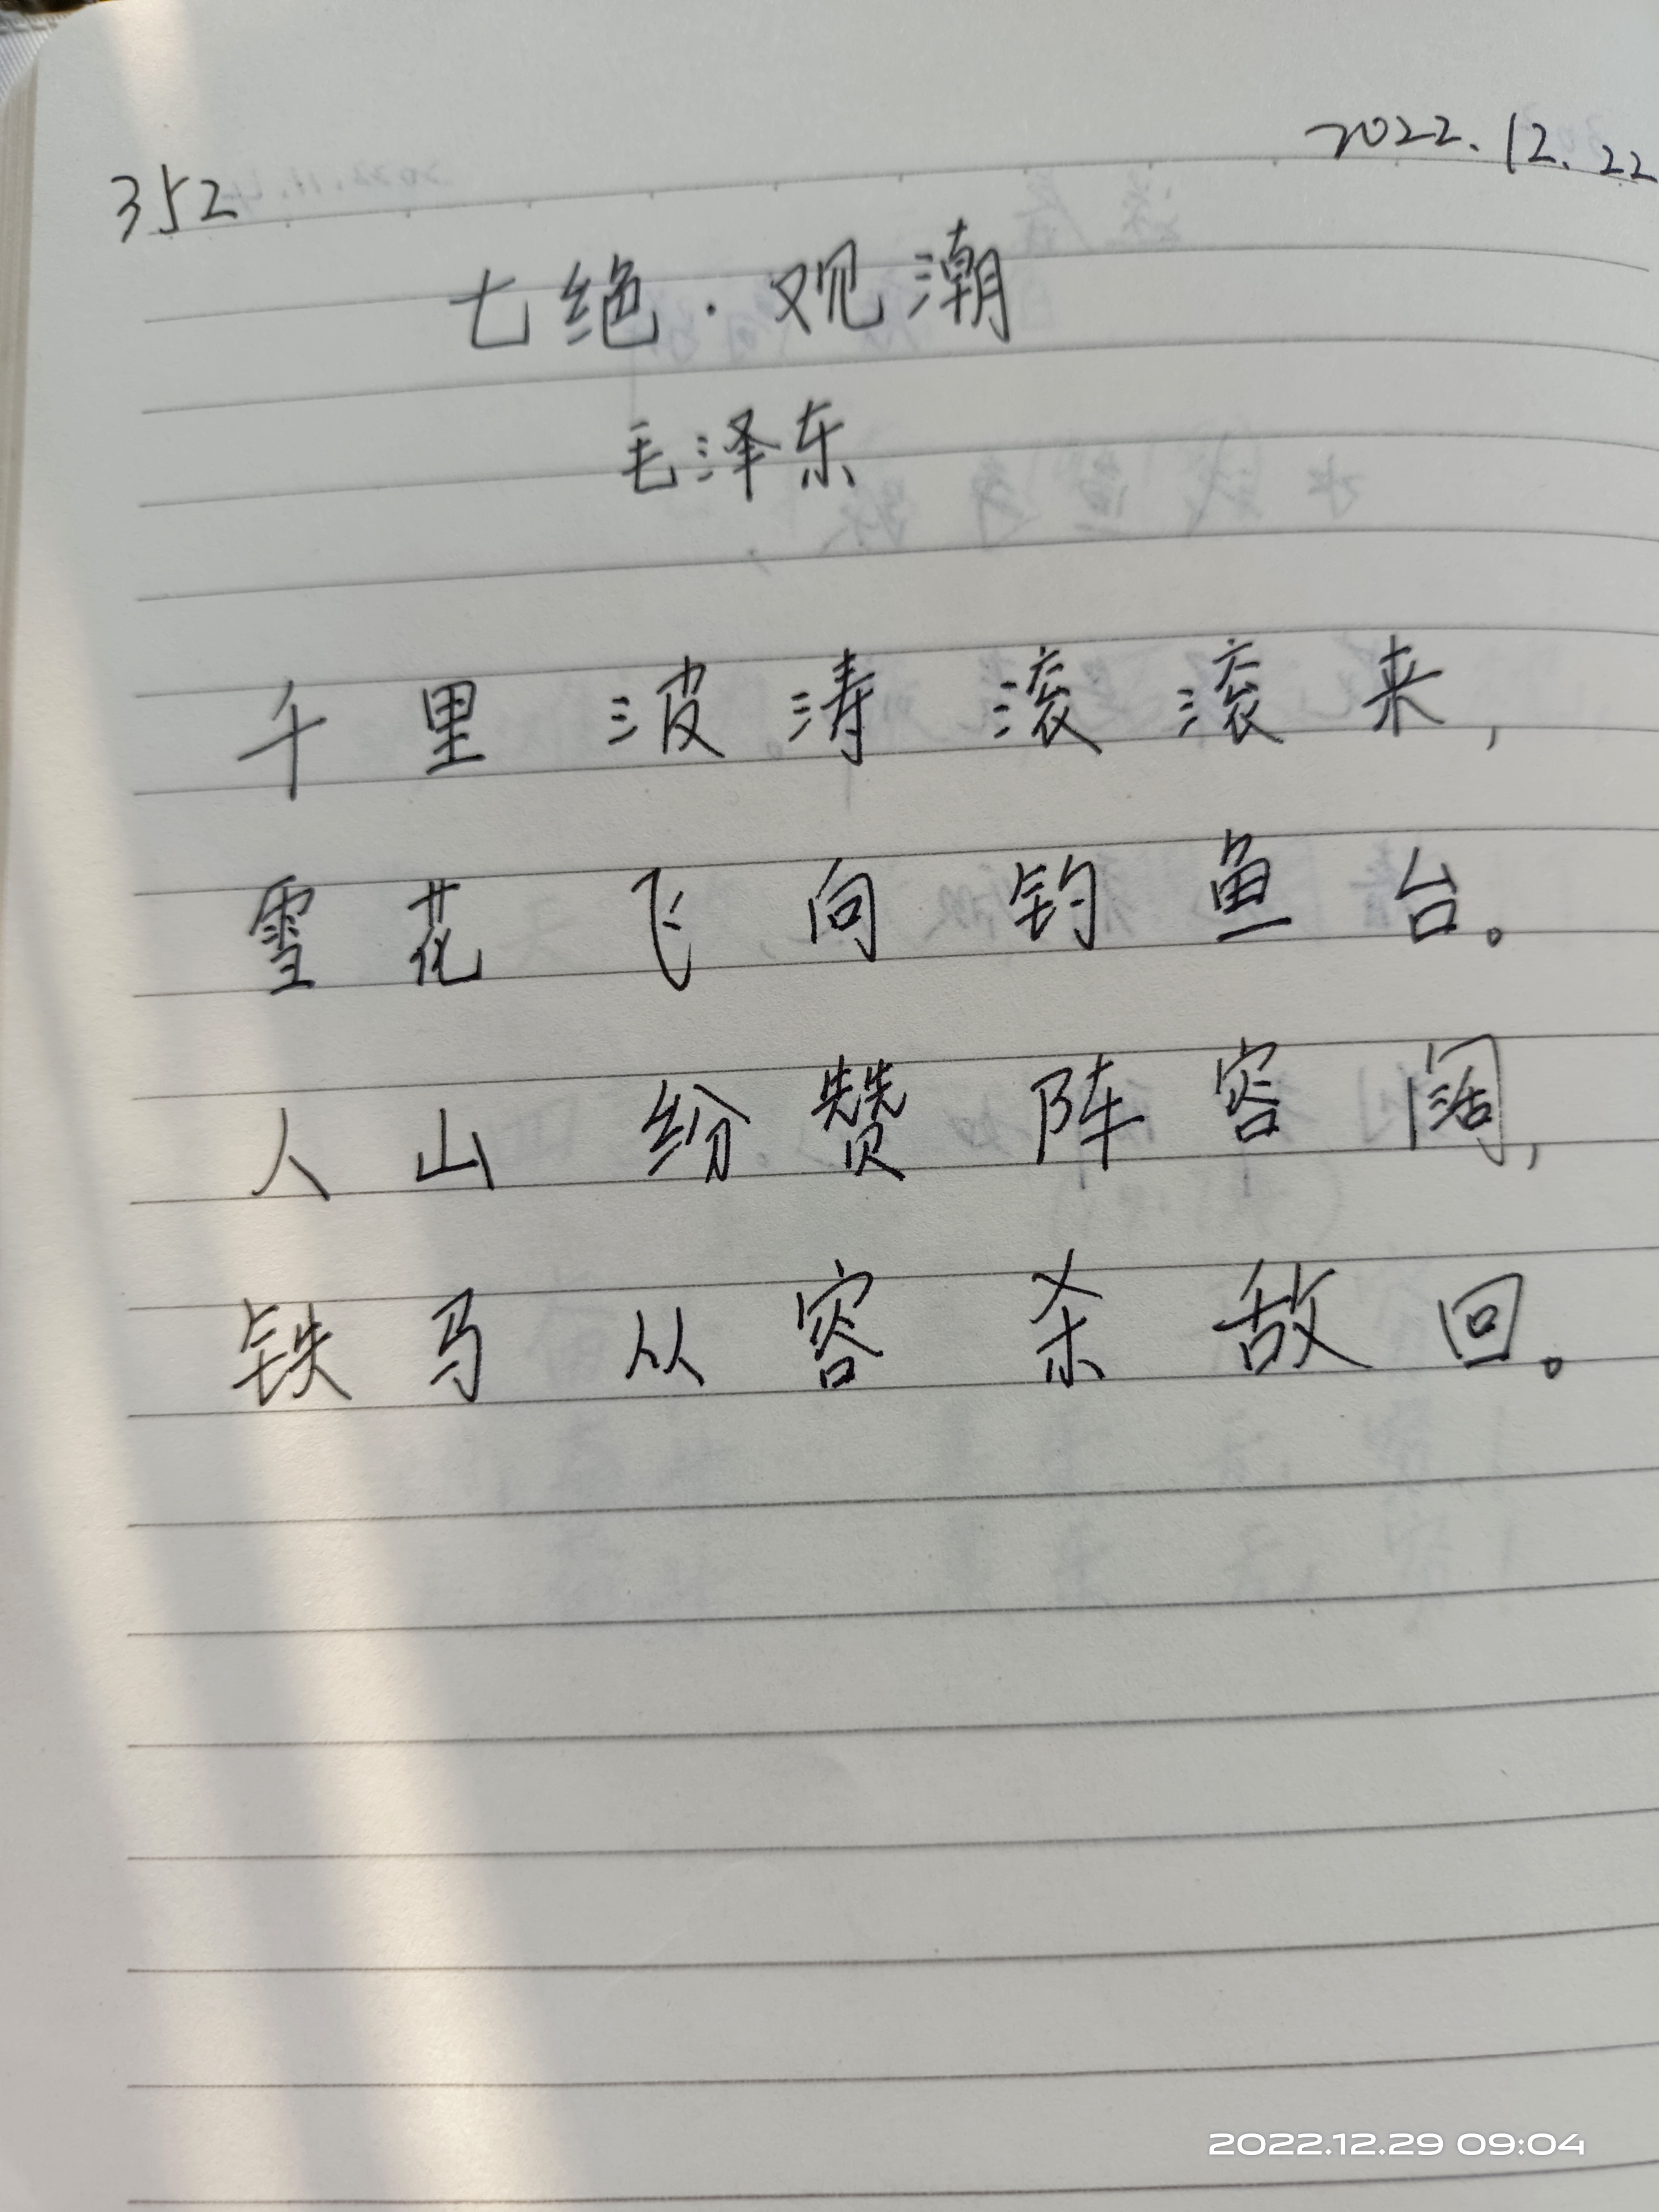 352
2022.12.22
七绝·观潮
毛泽东
千里波涛滚滚来,
雪花飞向钓鱼台。
人山纷赞阵容阔,
铁马从容杀敌回。
2022.12.29 09:04